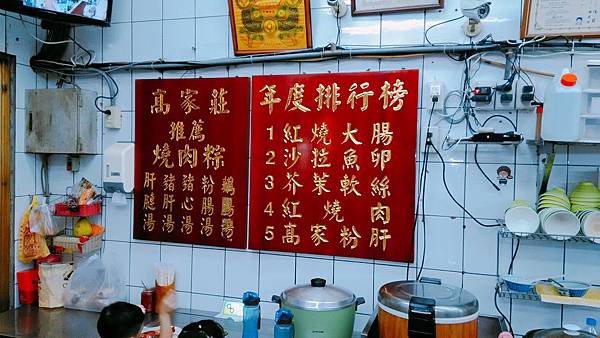 高家莊
推薦
燒肉粽
粉腸湯
豬心湯
豬肝湯
年度排行榜
1 紅燒大腸
2 沙拉魚卵
3 芥茉軟絲
4 紅燒肉
5 高家粉肝